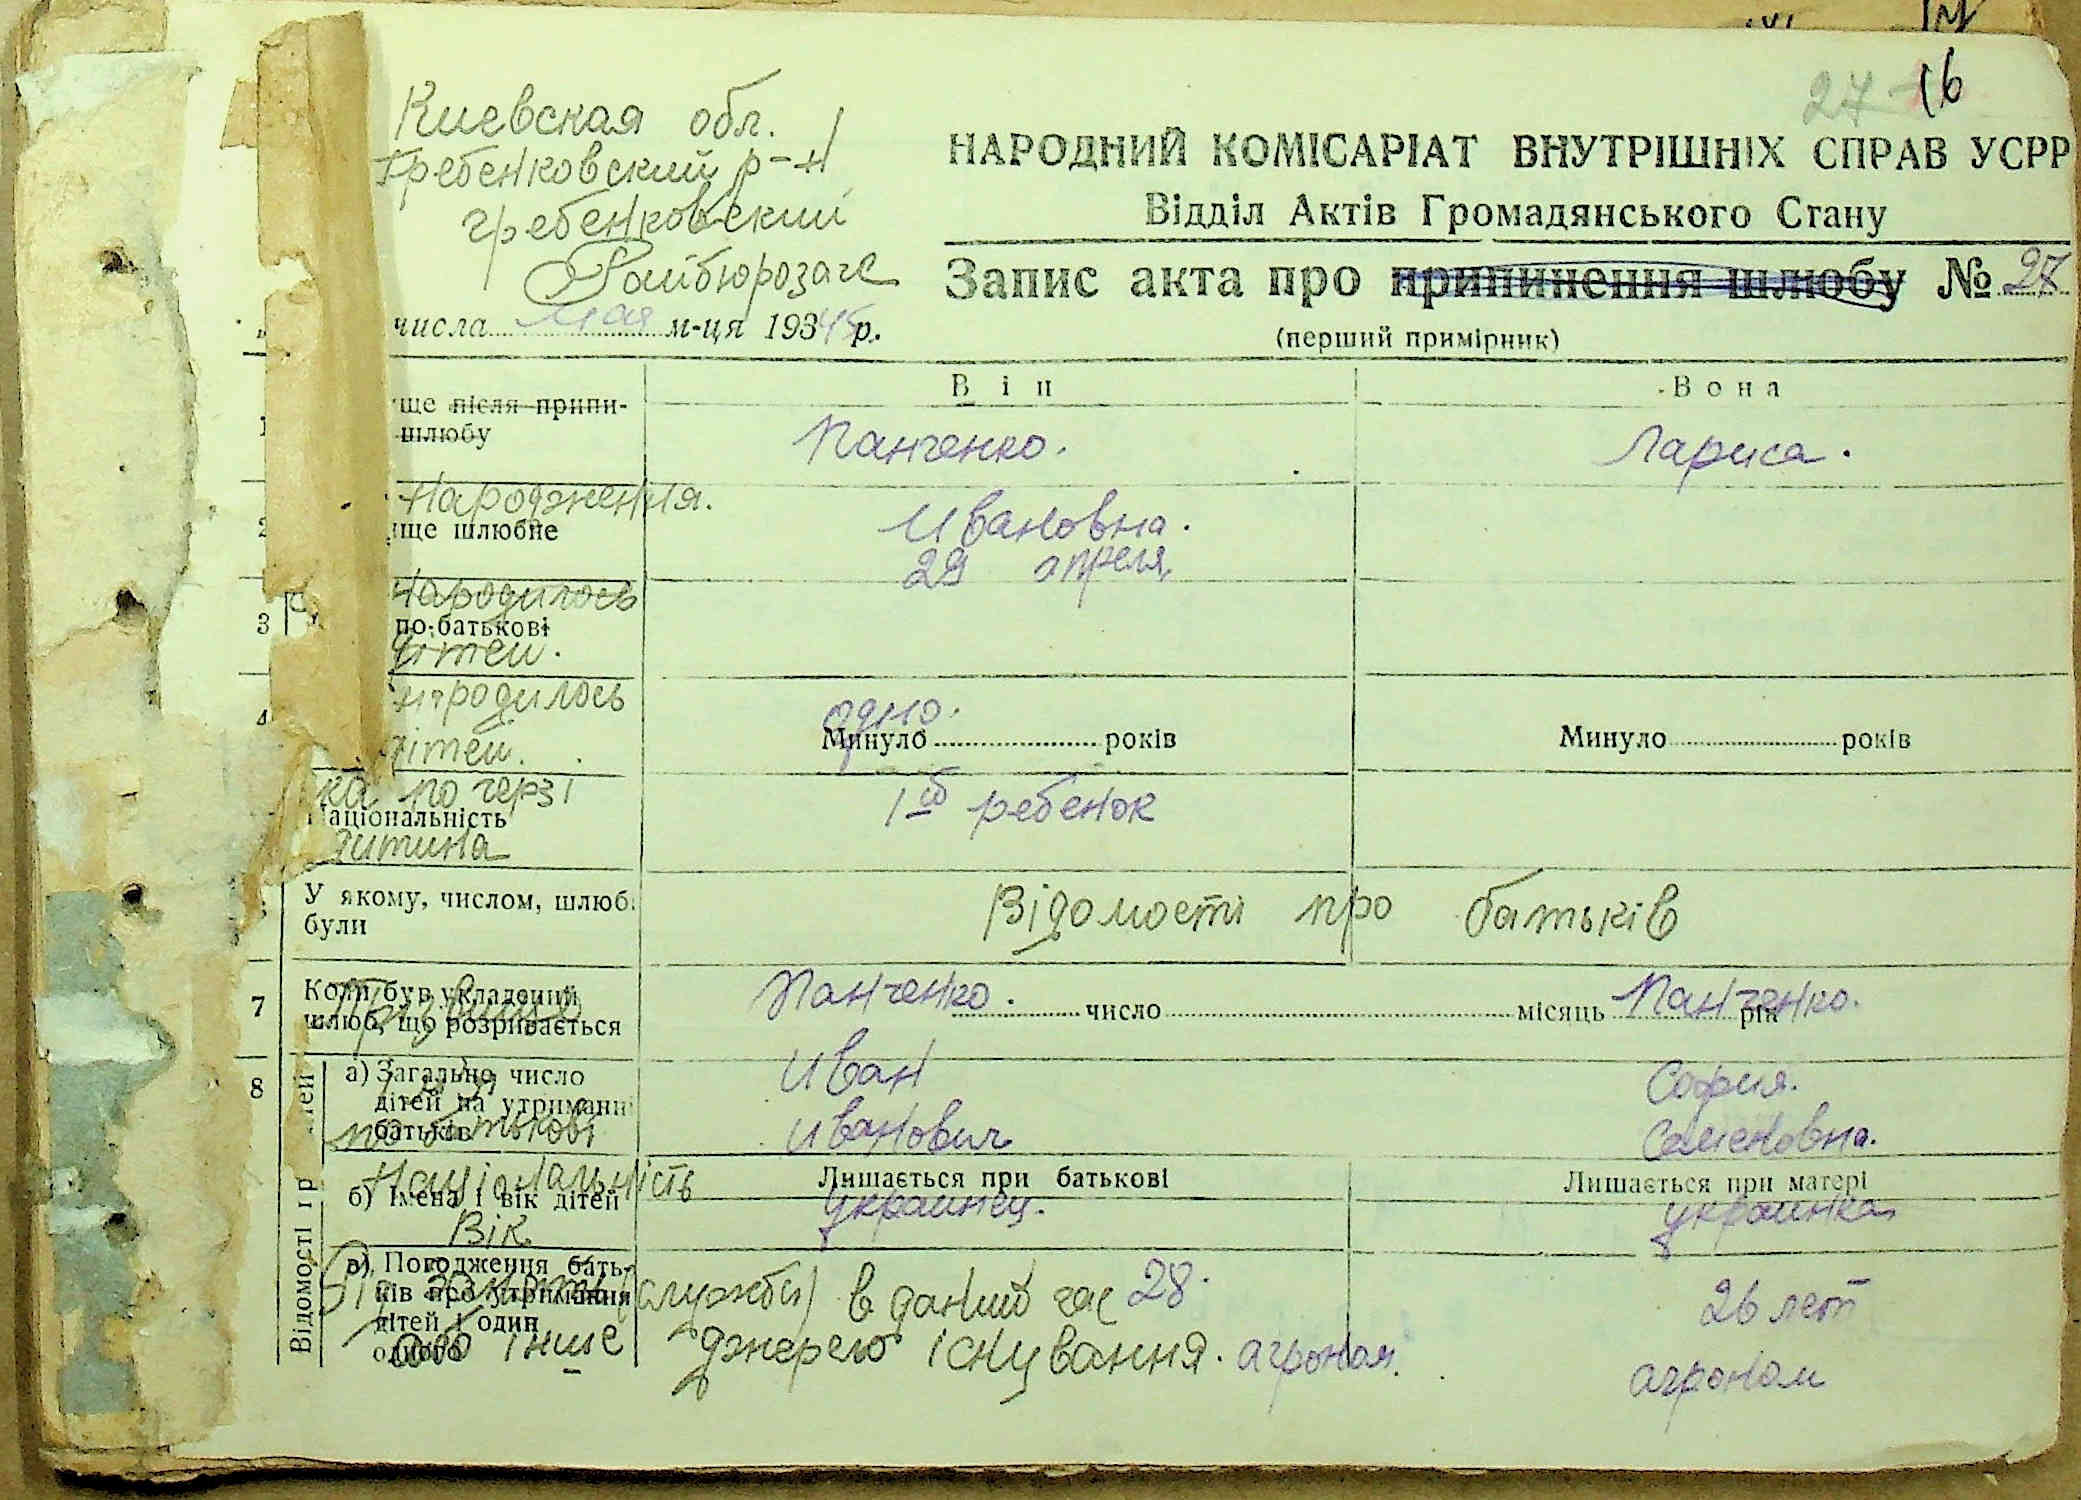 27 16
Киевская обл.
Гребенковский р-н
гребенковский
Райбюрозагс
числа Мая м-ця 1945р.
НАРОДНИЙ КОМІСАРІАТ ВНУТРІШНІХ СПРАВ УСРР
Відділ Актів Громадянського Стану
Запис акта про припинення шлюбу № 27
(перший примірник)
Він Вона
1 ще після припи-
шлюбу
Панченко. Лариса.
народження.
2 ище шлюбне
Ивановна.
29 апреля
народилось
3 по-батькові
дітей.
4 народилось
дітей.
одно.
Минуло років Минуло років
ка по черзі
Національність
дитина
1ый ребенок
У якому, числом, шлюб.
були
Відомості про батьків
7 Коли був укладений
шлюб, що розривається
Прізвище
Панченко. число місяць рік Панченко.
8 а) Загально число
дітей на утриманні
батьків
Ім'я
по батькові
Иван София.
Иванович Семеновна.
Національність
б) Імена і вік дітей
Вік
Лишається при батькові Лишається при матері
украинец. украинка
Відомості
в) Погодження бать-
ків про утримання
дітей і один
одного
(служби) в даний час 28. 26 лет
або інше джерело існування. агроном. агроном